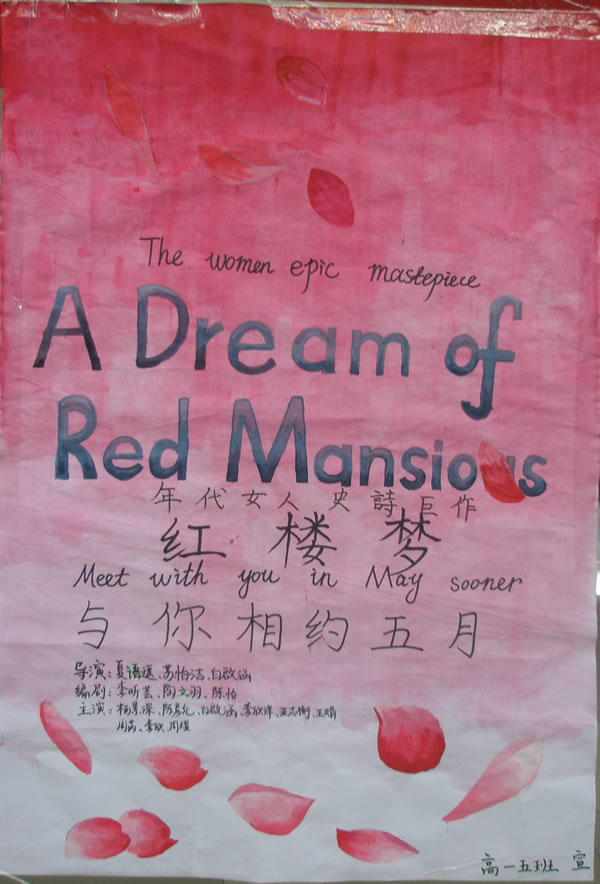 The women epic mastepiece
A Dream of
Red Mansions
年代女人史詩巨作
红楼梦
Meet with you in May sooner
与你相约五月
导演:夏语遥、苏怡洁、白啟涵
编剧:李昕芸、陶文羽、陈怡
主演:杨景深、白啟涵、李欣洋、王娟
李欣、周煜
高一五班 宣